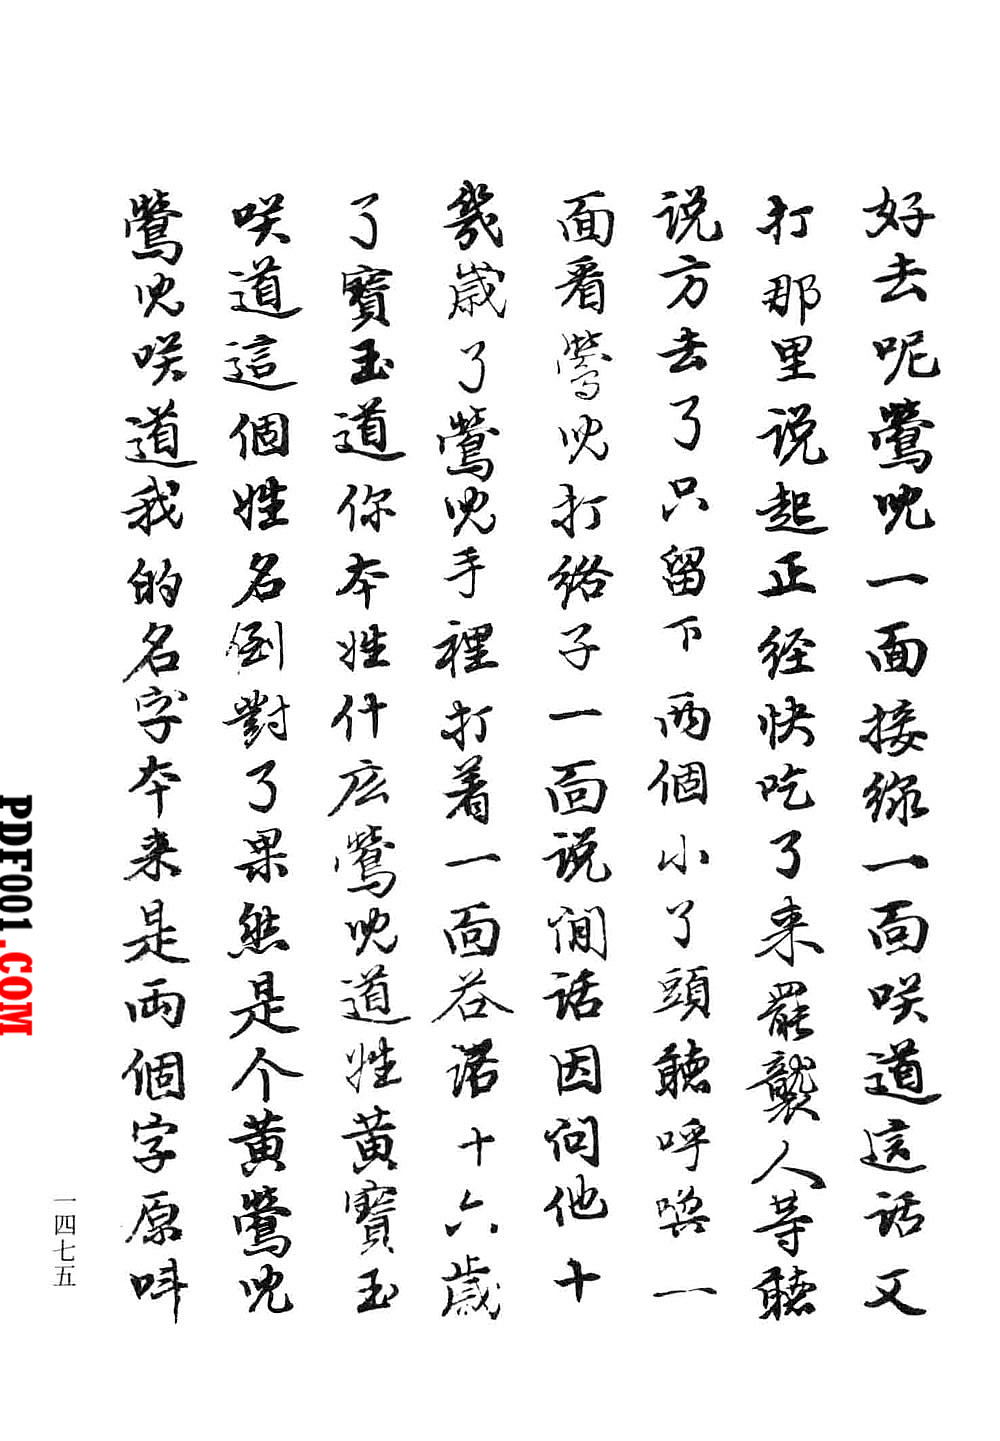 好去呢鶯児一面接線一面咲道這話又
打那里说起正经快吃了来罷襲人等聽
说方去了只留下两個小了頭聽呼喚一
面看鶯児打络子一面说间话因问他十
幾歲了鶯児手裡打着一面答话十六歲
了寶玉道你本姓什庅鶯児道姓黄寶玉
咲道這個姓名倒對了果然是个黄鶯児
鶯児咲道我的名字本来是両個字原呌
一四七五
PDF001.COM